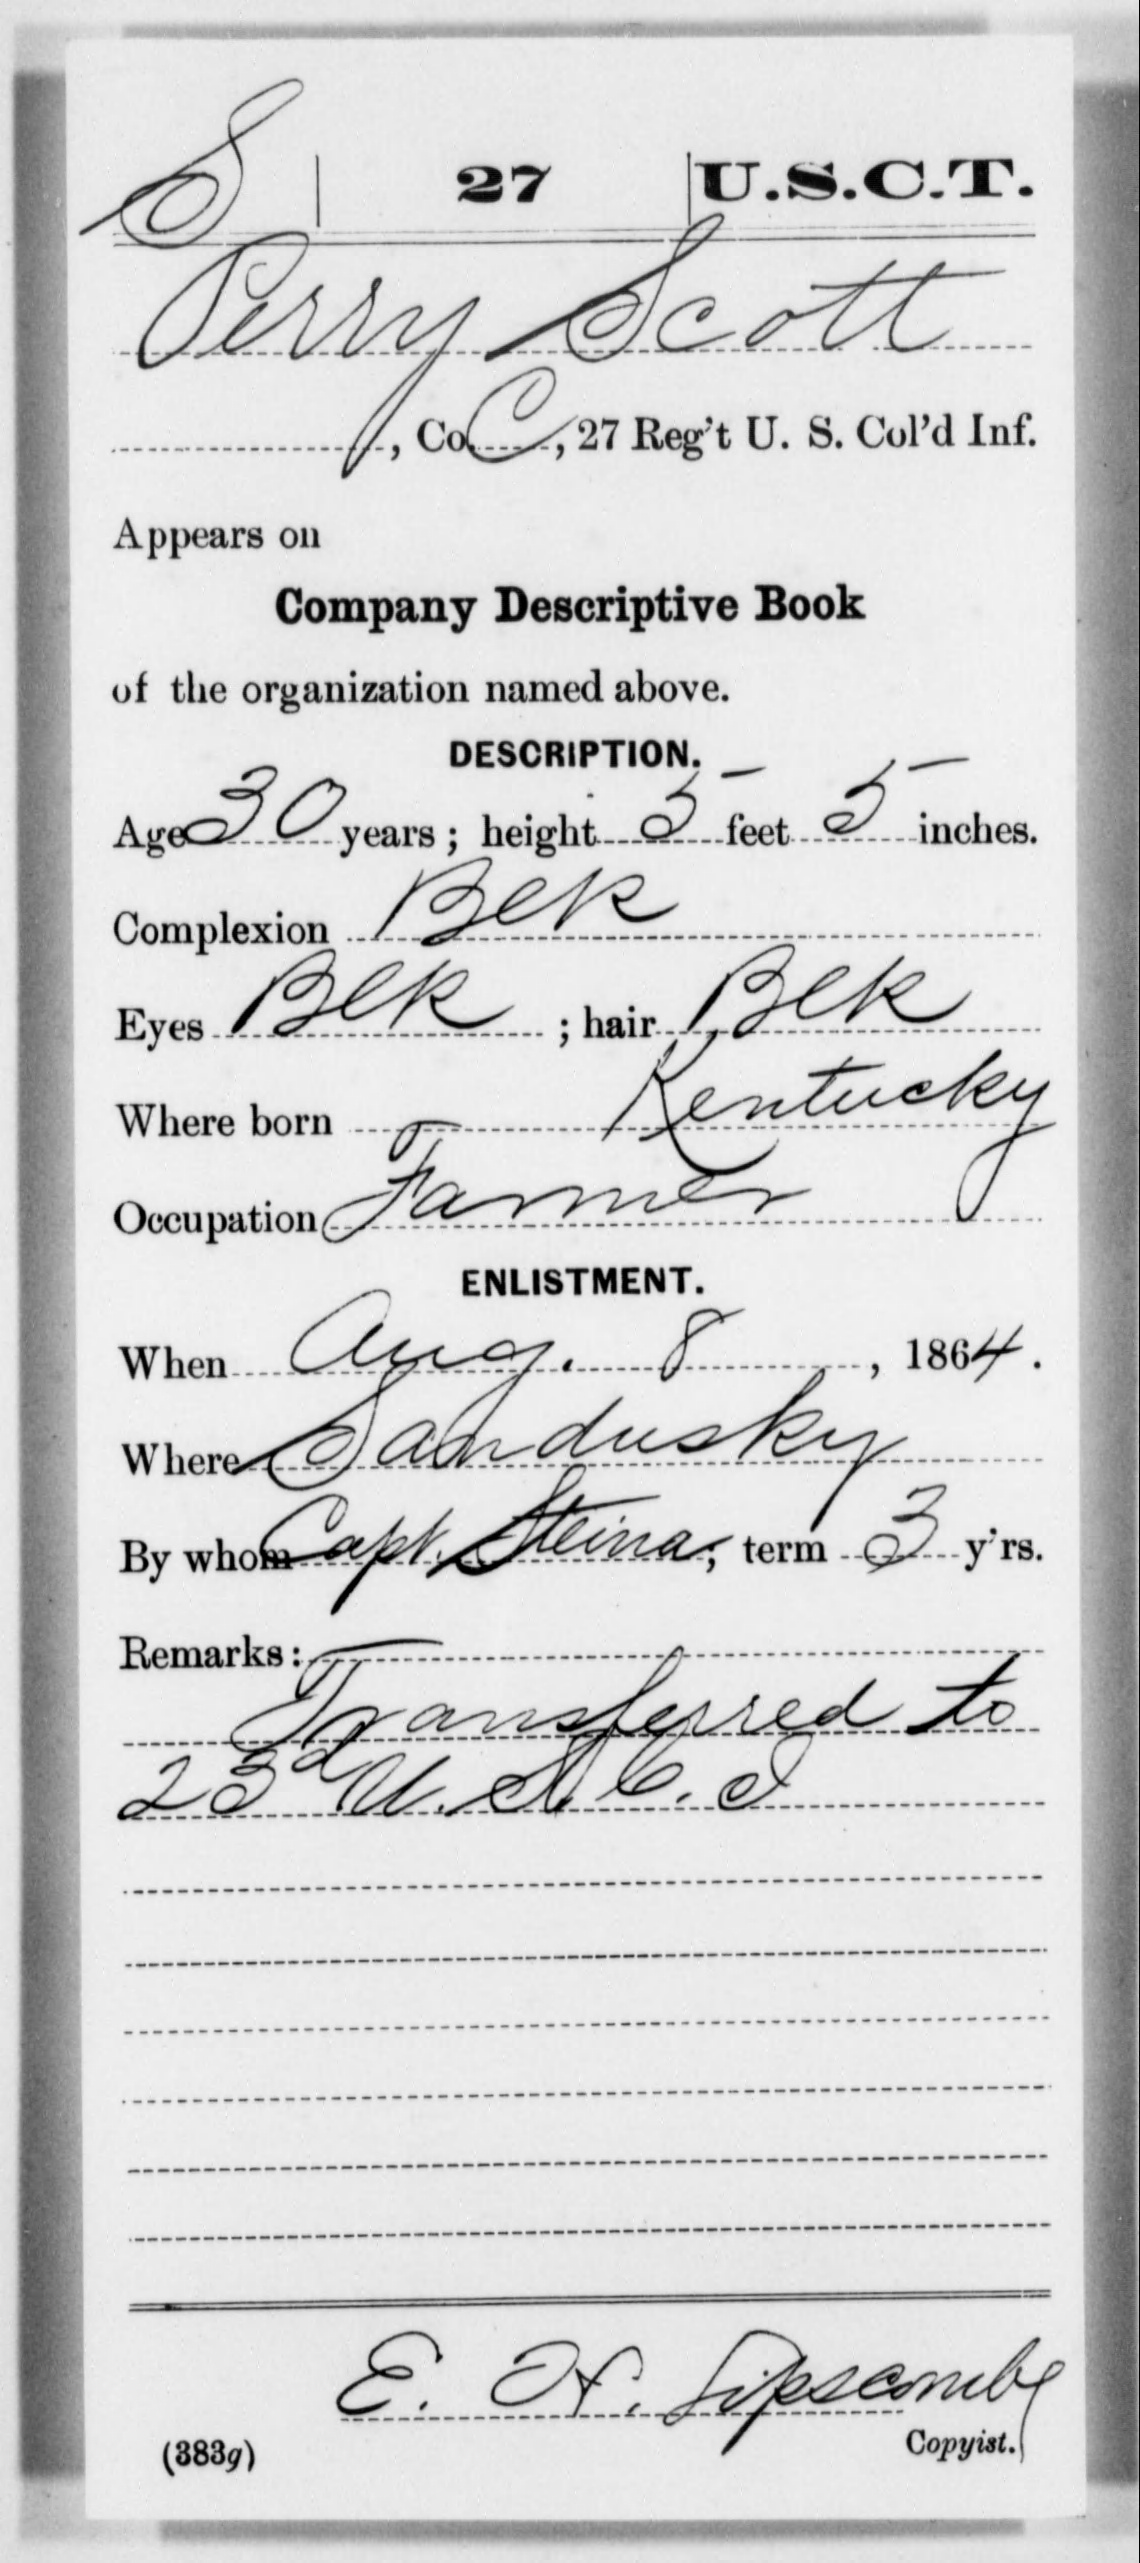 S | 27 | U.S.C.T.
Perry Scott
, Co. C, 27 Reg't U. S. Col'd Inf.
Appears on
Company Descriptive Book
of the organization named above.
DESCRIPTION.
Age 30 years; height 5 feet 5 inches.
Complexion Blk
Eyes Blk ; hair Blk
Where born Kentucky
Occupation Farmer
ENLISTMENT.
When Aug. 8, 1864.
Where Sandusky
By whom Capt. Steina; term 3 y'rs.
Remarks:
Transferred to
23d U.S.C.I
E. H. Lipscombe
(383g) Copyist.